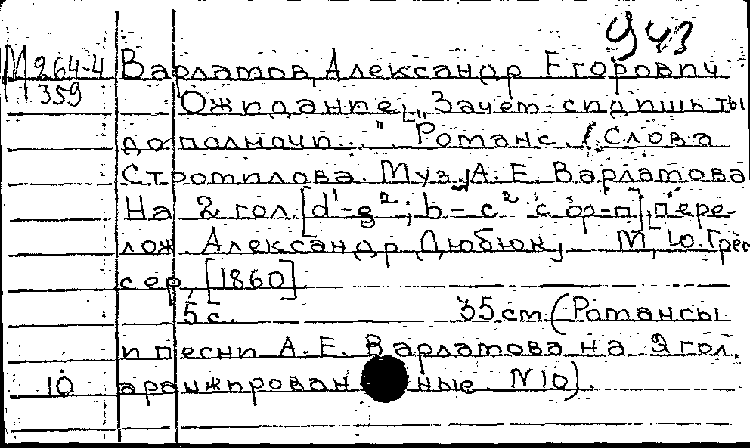 943
М 264-4 Варламов, Александр Егорович
359
Ожидание. "Зачем сидишь ты
до полночи..." Романс / Слова
Стромилова. Муз. А. Е. Варламова
На 2 гол. [d¹-g²; h-c² с ф-п], пере-
лож. Александр Дюбюк, М, Ю. Грес
сер, [1860]
5 с. 35 см (Романсы
и песни А. Е. Варламова на 2 гол.
10 аранжирован ные N10).